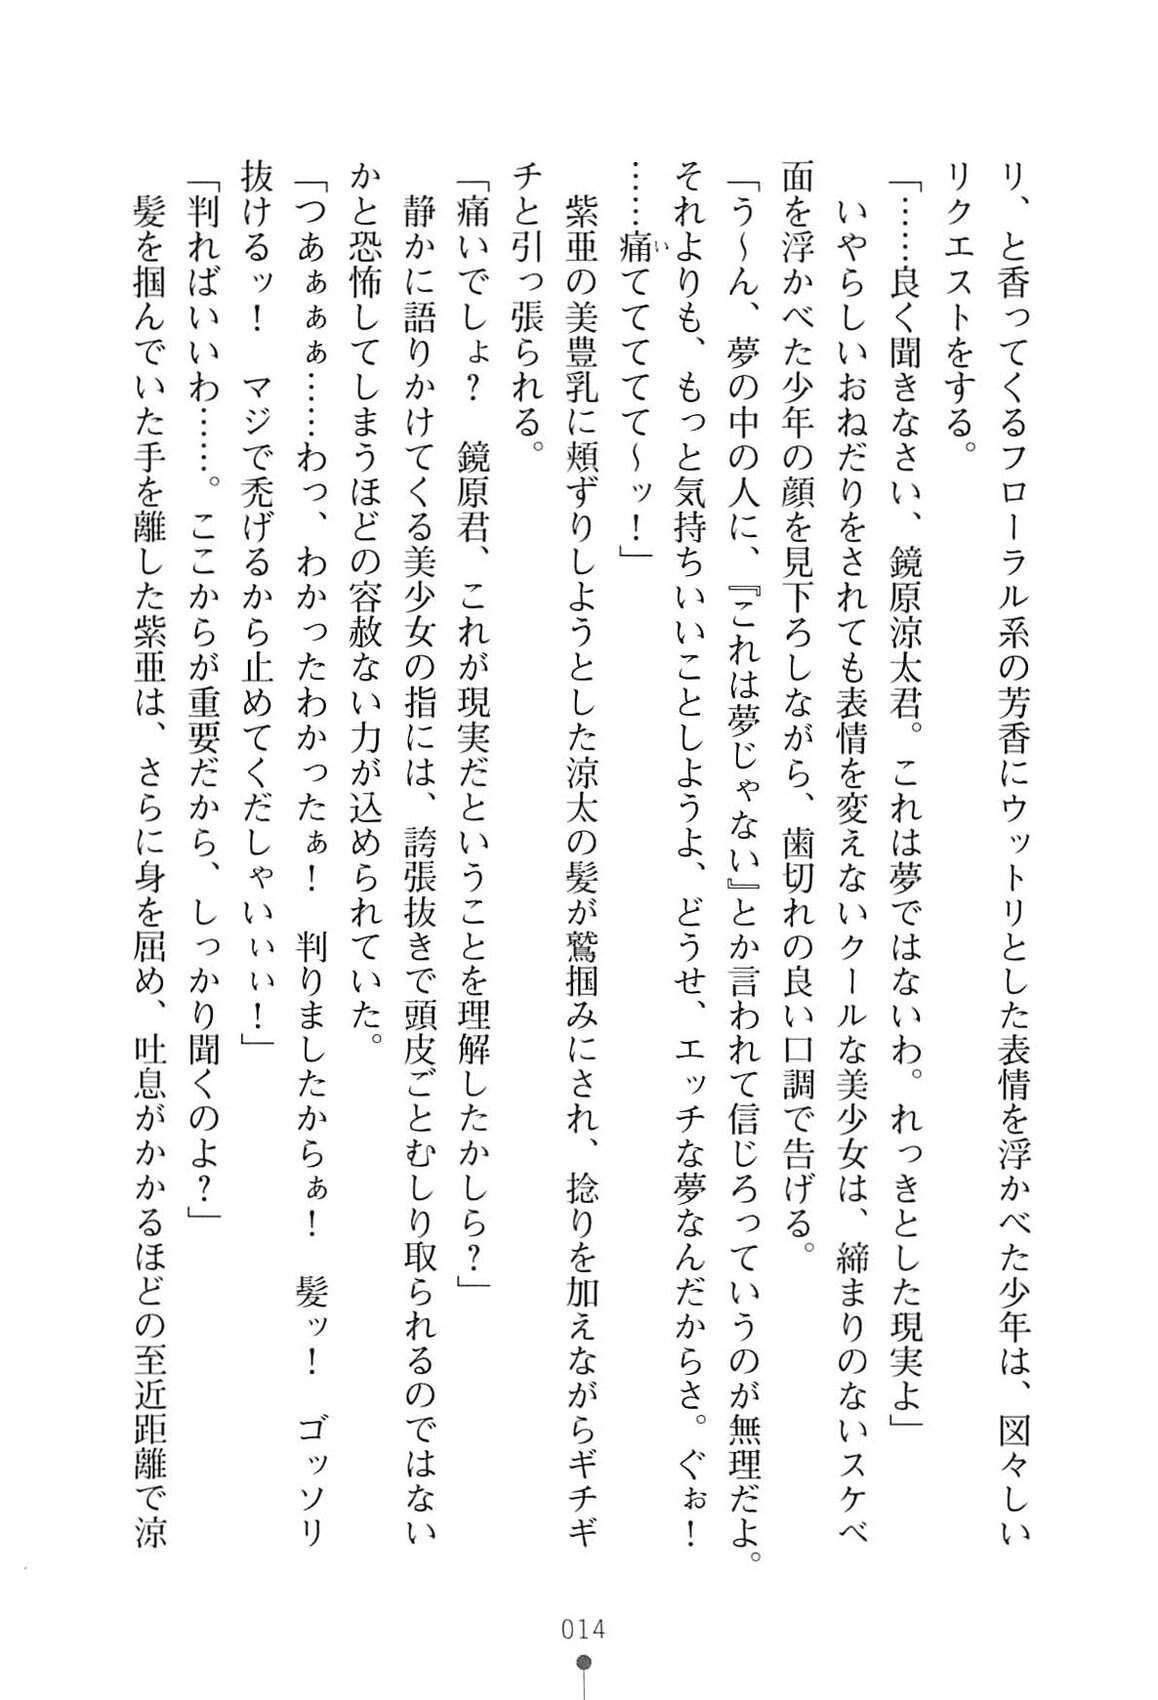 リ、と香ってくるフローラル系の芳香にウットリとした表情を浮かべた少年は、図々しい
リクエストをする。
「……良く聞きなさい、鏡原涼太君。これは夢ではないわ。れっきとした現実よ」
いやらしいおねだりをされても表情を変えないクールな美少女は、締まりのないスケベ
面を浮かべた少年の顔を見下ろしながら、歯切れの良い口調で告げる。
「う～ん、夢の中の人に、『これは夢じゃない』とか言われて信じろっていうのが無理だよ。
それよりも、もっと気持ちいいことしようよ、どうせ、エッチな夢なんだからさ。ぐぉ！
……痛いてててててて～ッ！」
紫亜の美豊乳に頬ずりしようとした涼太の髪が鷲掴みにされ、捻りを加えながらギチギ
チと引っ張られる。
「痛いでしょ？　鏡原君、これが現実だということを理解したかしら？」
静かに語りかけてくる美少女の指には、誇張抜きで頭皮ごとむしり取られるのではない
かと恐怖してしまうほどの容赦ない力が込められていた。
「つあぁぁぁ……わっ、わかったわかったぁ！　判りましたからぁ！　髪ッ！　ゴッソリ
抜けるッ！　マジで禿げるから止めてくだしゃいぃぃ！」
「判ればいいわ……。ここからが重要だから、しっかり聞くのよ？」
髪を掴んでいた手を離した紫亜は、さらに身を屈め、吐息がかかるほどの至近距離で涼
014